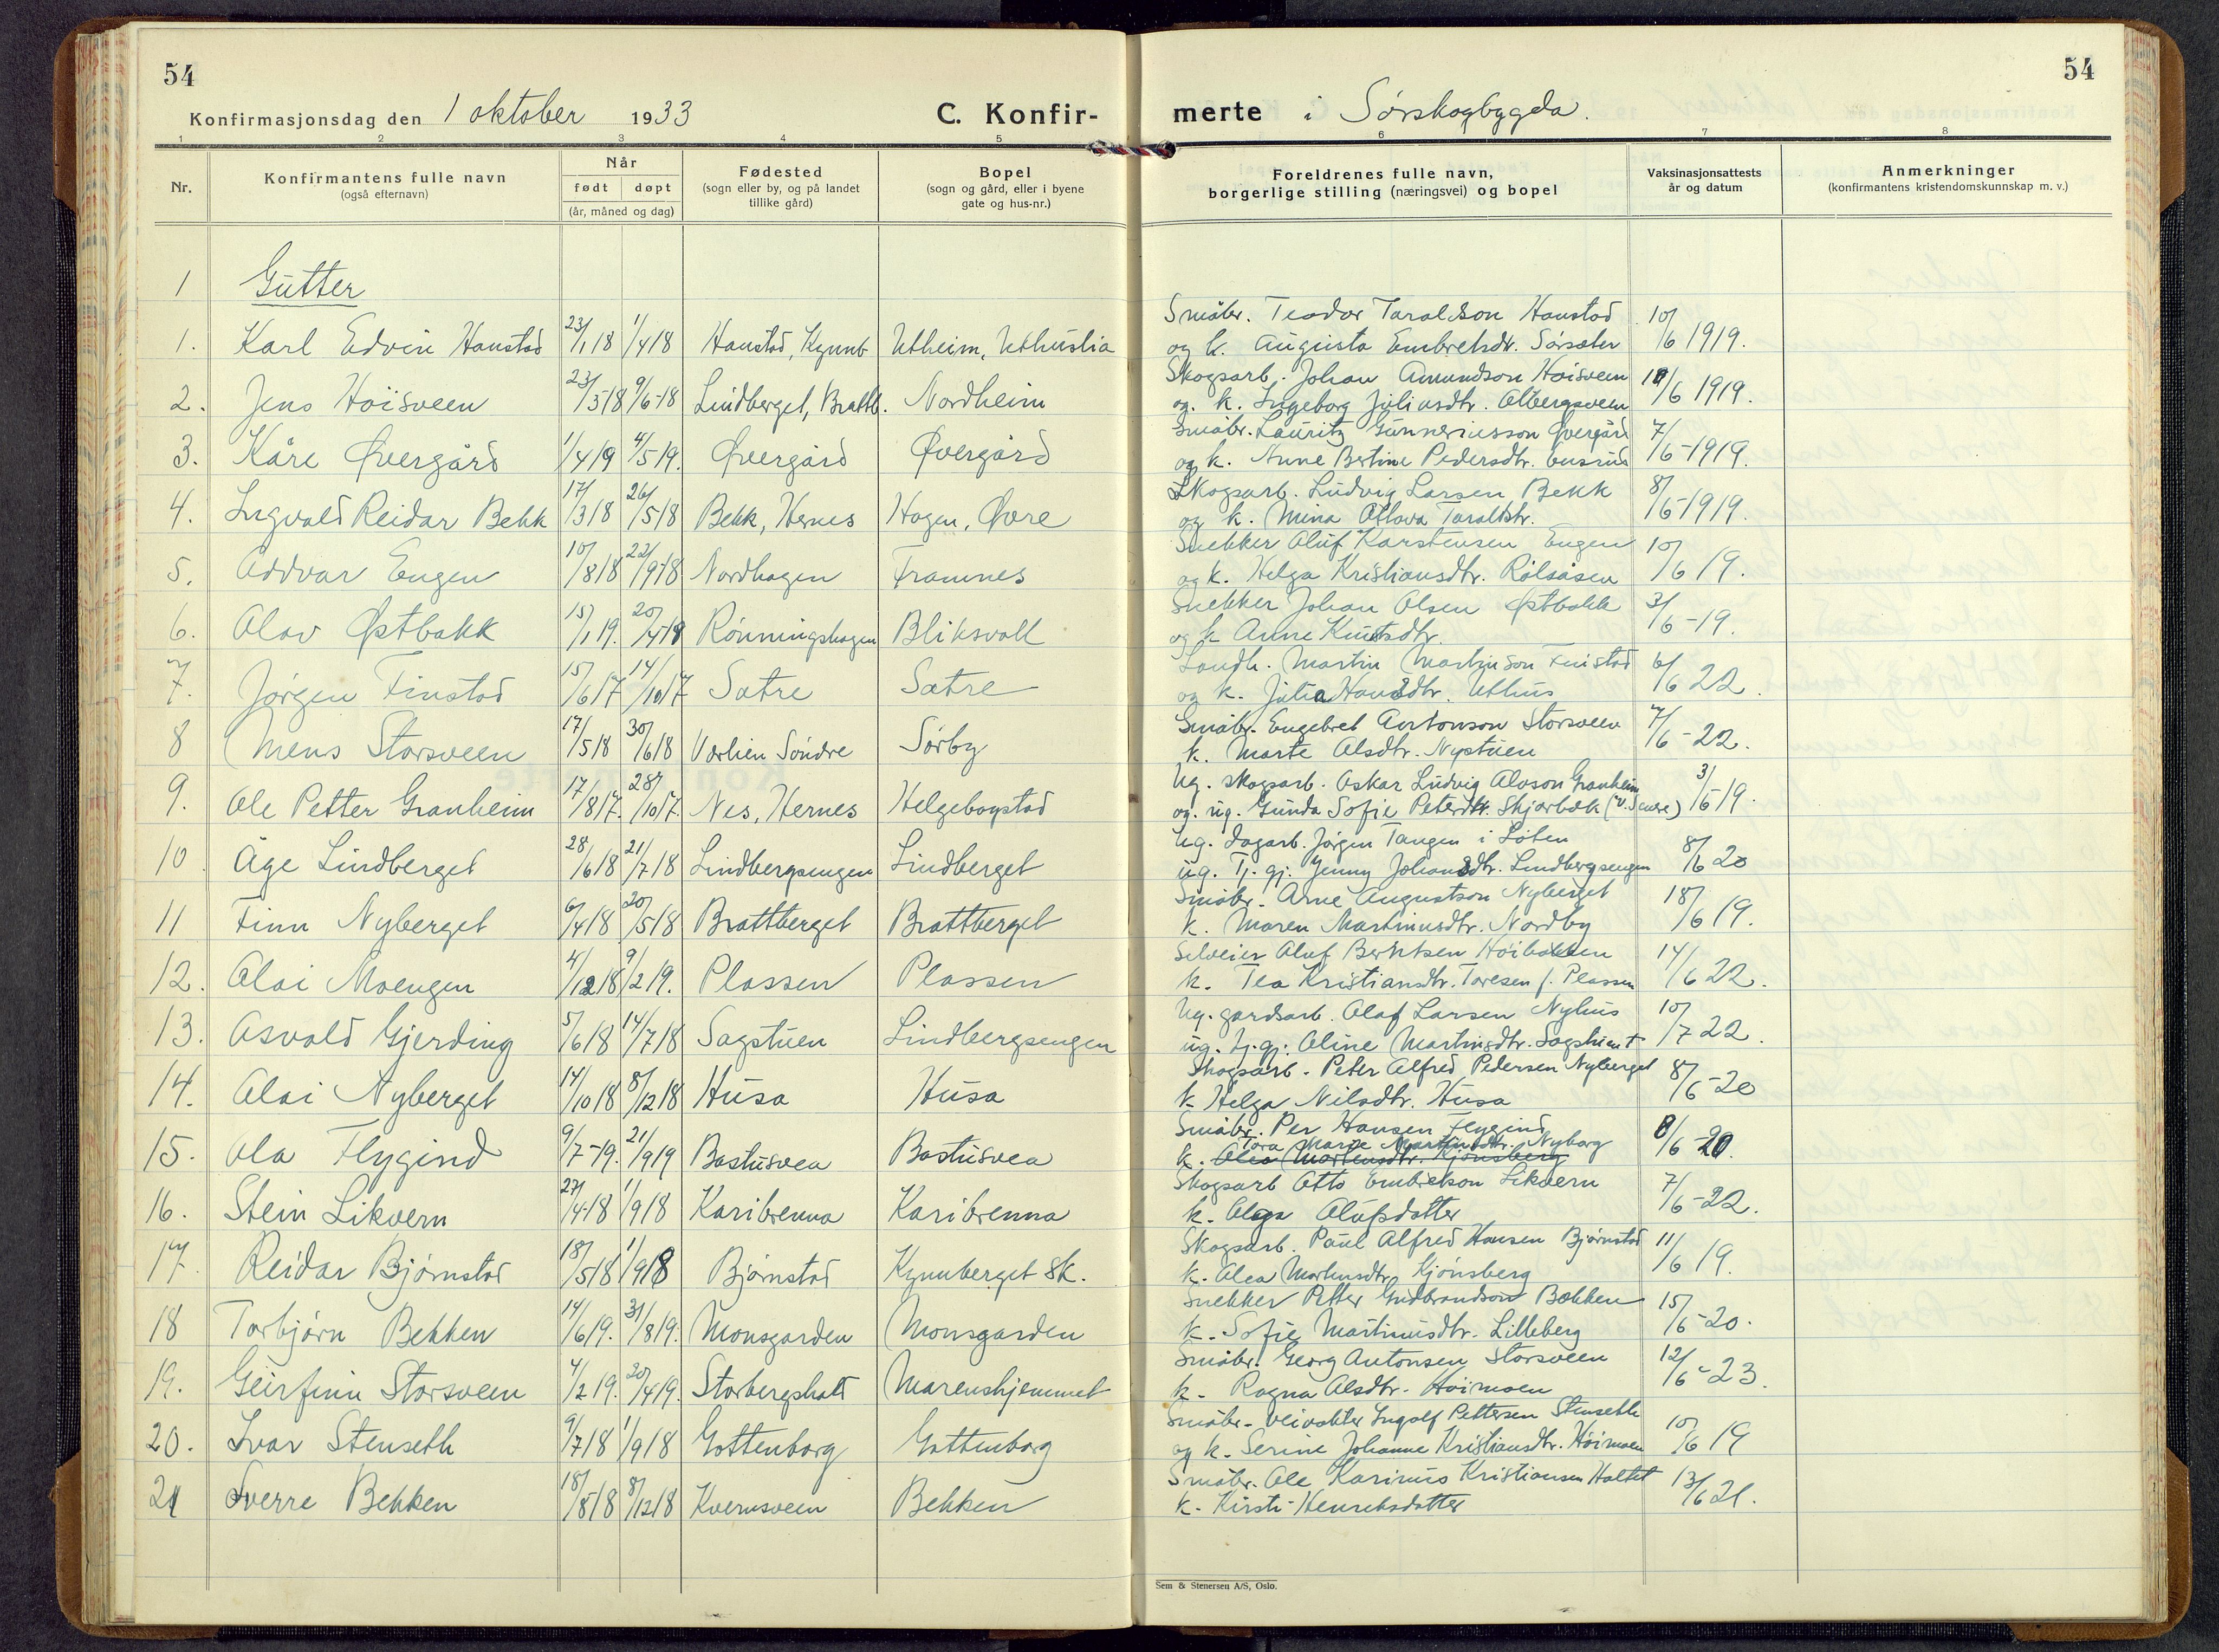 54
Konfirmasjonsdag den 1 oktober 1933
C. Konfir-
1 2 3 4 5
Nr.
Konfirmantens fulle navn
(også efternavn)
Når
født døpt
(år, måned og dag)
Fødested
(sogn eller by, og på landet
tillike gård)
Bopel
(sogn og gård, eller i byene
gate og hus-nr.)
1 Gutter
1. Karl Edvin Hanstad 23/1 18 1/4 18 Hanstad, Kynnb Utheim, Uthuslia
2. Jens Höisveen 23/5 18 9/6-18 Lindberget, Brattb. Nordheim
3. Kåre Øvergård 1/4 19 4/5 19. Øvergård Øvergård
4. Ingvald Reidar Bekk 17/3 18 26/5 18 Bekk, Hernes Hagen, Øvre
5. Oddvar Engen 10/8 18 22/9-18 Nordhagen Framnes
6. Olav Østbakk 15/1 19. 20/4-19 Rönningshagen Bliksvoll
7. Jörgen Finstad 15/6 17 14/10 17 Sætre Sætre
8 Mens Storsveen 17/5 18 30/6 18 Værlien Söndre Sörby
9. Ole Petter Granheim 17/8 17. 28/10 17. Nes, Hernes Helgebogstad
10 Åge Lindberget 28/6 18 21/7 18 Lindbergsengen Lindberget
11 Finn Nyberget 6/4 18 20/5 18 Brattberget Brattberget
12. Olai Moengen 4/12 18 9/2 19. Plassen Plassen
13. Asvald Gjerding 5/6 18 14/7 18 Sagstuen Lindbergsengen
14. Olai Nyberget 14/10 18 8/12 18 Husa Husa
15. Ola Flygind 9/7-19. 21/9 19 Bastusvea Bastusvea
16. Stein Likvern 27/4-18 1/9 18 Karibrenna Karibrenna
17. Reidar Björnstad 18/5 18 1/9 18 Björnstad Kynnberget Sk.
18 Torbjörn Bekken 14/6 19. 31/8 19. Monsgarden Monsgarden
19. Geirfinn Storsveen 4/2 19. 20/4 19. Storbergshold Marenshjemmet
20. Ivar Stenseth 9/7 18 1/9 18 Gottenborg Gottenborg
21 Sverre Bekken 18/8 18 8/12 18 Kvernsveen Bekken
54
merte i Sörskogbygda.
6 7 8
Foreldrenes fulle navn,
borgerlige stilling (næringsvei) og bopel
Vaksinasjonsattests
år og datum
Anmerkninger
(konfirmantens kristendomskunnskap m. v.)
Småbr. Teodor Taraldson Hanstad 10/6 1919.
og k. Augusta Embretsdr. Sörsæter
Skogsarb. Johan Amundson Höisveen 10/6 1919.
og k. Ingeborg Juliusdtr. Olbergsveen
Småbr. Lauritz Gunneriusson Øvergård 7/6-1919.
og k. Anne Bertine Pedersdtr.
Skogsarb. Ludvig Larsen Bekk 8/6-1919.
og k. Mina Taraldstr.
Snekker Oluf Karstensen Engen 10/6 19.
og k. Helga Kristiansdtr. Rölsåsen
Snekker Johan Olsen Østbakk 3/6-19.
og k Anne Knutsdtr.
Landh. Martin Martinson Finstad 6/6 22.
og k. Julia Hansdtr. Uthus
Småbr. Engebret Antonson Storsveen 7/6-22.
k. Marte Olsdtr. Nystuen
Ug. skogsarb. Oskar Ludvig Olvson Granheim 3/6 19.
og ug. Gunda Sofie Petersdtr. Skjærbæk
Ug. dagarb. Jörgen Tangen i Löten 8/6 20
ug. Tj. gj. Jenny Johansdtr. Lindbergsengen
Småbr. Arne Augustson Nyberget 18/6 19.
k. Maren Martinusdtr. Nordby
Selveier Oluf Berntsen Höibakken 14/6 22.
k. Tea Kristiansdtr. Toresen f. Plassen
Ug. gardsarb. Olaf Larsen Nyhus 10/7 22.
ug. tj.gj. Oline Martinsdtr. Sagstuen
Skogsarb. Peter Alfred Pedersen Nyberget 8/6-20
k Helga Nilsdtr. Husa
Småbr. Per Hansen Flygind 8/6-20.
Tora Marie Martinsdtr. Nyborg
k. Olea Martensdtr. Kjönsberg
Skogsarb Otto Embretson Likvern 7/6-22.
k. Olga Olufsdatter
Skogsarb. Paul Alfred Hansen Björnstad 11/6 19.
k. Olea Martinsdtr. Kjönsberg
Snekker Petter Gudbrandson Bækken 15/6-20.
k. Sofie Martinusdtr. Lilleberg
Småbr. Georg Antonsen Storsveen 12/6-23.
k. Ragna Olsdtr. Höimoen
Småbr.-veivokter Ingolf Pettersen Stenseth 10/6 19
og k. Serine Johanne Kristiansdtr. Höimoen
Småbr. Ole Karinus Kristiansen Holtet 13/6 21.
k. Kirsti Henriksdatter
Sem & Stenersen A/S, Oslo.